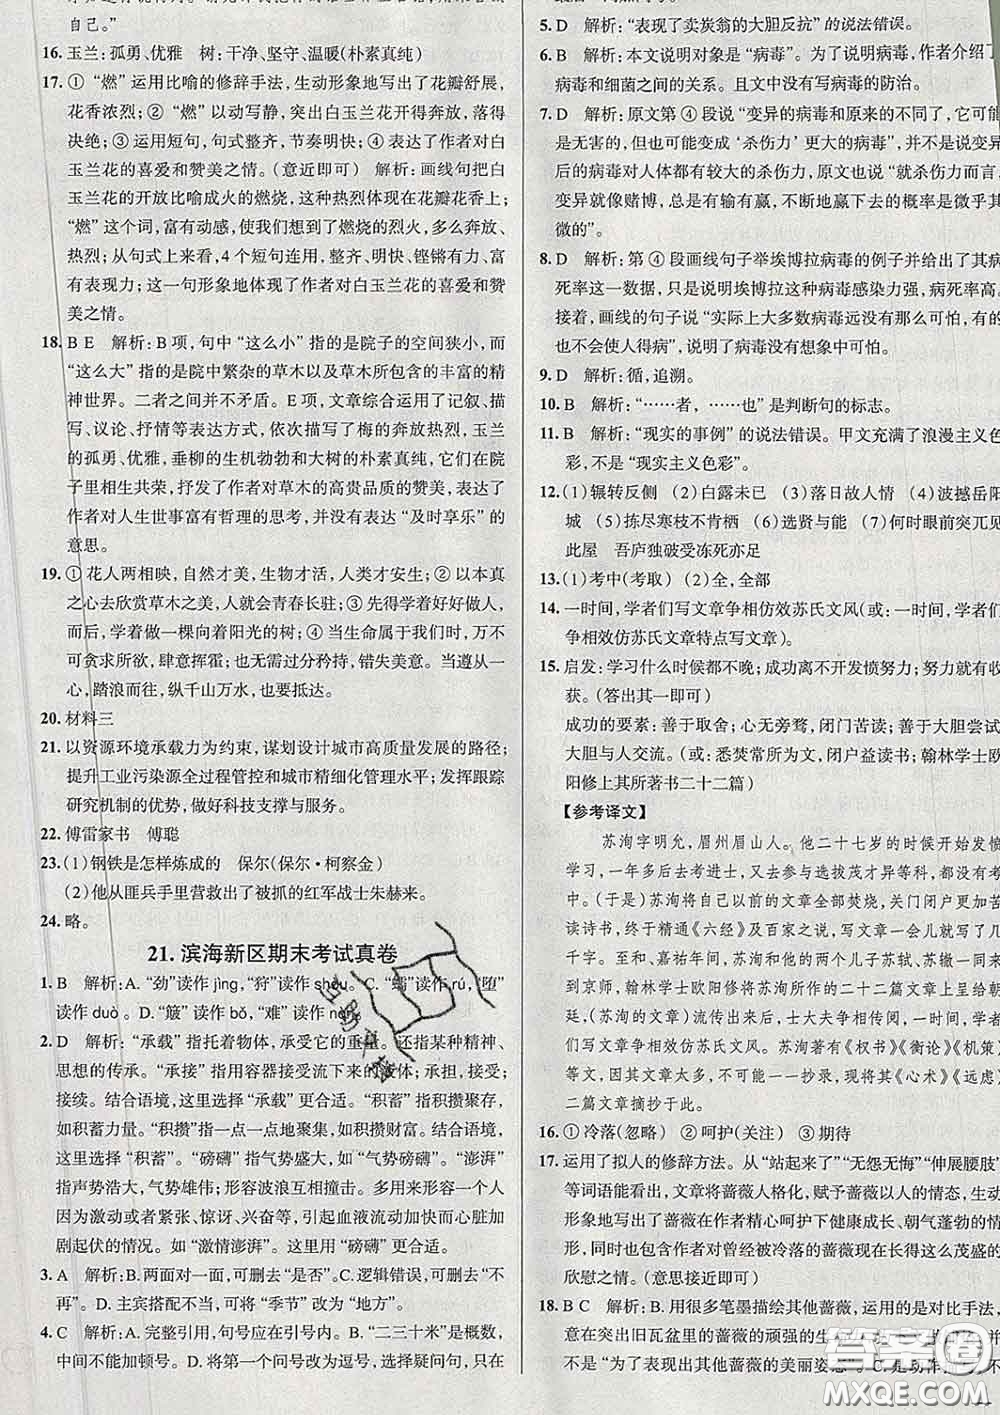 自己。”
16. 玉兰:孤勇、优雅　树:干净、坚守、温暖(朴素真纯)
17. ① “燃” 运用比喻的修辞手法,生动形象地写出了花瓣舒展,
花香浓烈;② “燃” 以动写静,突出白玉兰花开得奔放、落得
决绝;③ 运用短句,句式整齐,节奏明快;④ 表达了作者对白
玉兰花的喜爱和赞美之情。(意近即可)　解析:画线句把白
玉兰花的开放比喻成火的燃烧,突出它的花瓣花香上;
“燃” 这个词,富有动感,使我们想到了燃烧的烈火,多么奔放、
热烈;从句式上来看,4 个短句连用,整齐、明快、铿锵有力,富
有表现力;这一句形象地体现了作者对白玉兰花的喜爱和赞
美之情。
18. B E　解析:B 项,句中 “这么小” 指的是院子的空间狭小,而
“这么大” 指的是院中繁杂的草木以及草木所包含的丰富的精
神世界。二者之间并不矛盾。E 项,文章综合运用了记叙、描
写、议论、抒情等表达方式,依次描写了梅的奔放热烈,玉兰
的孤勇、优雅,垂柳的生机勃勃和大树的朴素真纯;它们在院
子里相生共荣,抒发了作者对草木的高贵品质的赞美,表达
了作者对人生世事富有哲理的思考,并没有表达 “及时享乐” 的
意思。
19. ① 花人两相映,自然才美,生物才活,人类才安生;② 以本真
之心去欣赏草木之美,用草木之美让人生青春长驻;③ 先得学着好好去爱,
而后,学着做一棵向着阳光的树;④ 手中有花时,万不
可贪求所欲,肆意挥霍;也无需过分矜持,错失美意。当溢满从
心,踏浪而往,纵千山万水,也要抵达。
20. 材料三
21. 以资源环境承载力为约束,谋划设计城市高质量发展的路径;
提升工业污染源全过程管控和城市精细化管理水平;发挥跟踪
研究机制的优势,做好科技支撑与服务。
22. 傅雷家书　傅聪
23. (1)钢铁是怎样炼成的　保尔(保尔·柯察金)
(2)他从匪兵手里营救出了被抓的红军战士朱赫来。
24. 略。
21. 滨海新区期末考试真卷
1. B　解析:A. “劲”读作 jìng, “狩”读作 shòu。C. “蠕”读作 rú, “堕”
读作 duò 。D. “簸” 读作 bǒ, “难” 读作
2. D　解析: “承载” 指托着物体,承受它的重量。还指某种精神、
思想的传承。“承接” 指用容器接受流下来的液体;承担,接受;
接续。结合语境,这里选择 “承载” 更合适。“积蓄” 指积聚储存,
如积蓄力量。“积攒”指一点一点地聚集,如积攒财富。结合语境,
这里选择 “积蓄”。“磅礴” 指(气势)盛大,如 “气势磅礴”。“澎湃”
指声势浩大,气势雄伟;形容波浪互相撞击。多用来形容人
因为激动或者紧张、惊讶、兴奋等,引起血液流动加快而心脏加
剧起伏的情况。如 “激情澎湃”。所以 “磅礴” 更合适。
3. A　解析:B. 两面对一面,可删去 “是否”。C. 逻辑错误,可删去 “不
再”。D. 主宾搭配不当,可将 “季节” 改为 “地方”。
4. C　解析:A. 完整引用,句号应在引号内。B. “二三十米”是概数,
中间不能加顿号。D. 将第一个问号改为逗号,选择疑问句,只在
5. D　解析: “表现了卖炭翁的大胆反抗” 的说法错误。
6. B　解析:本文说明对象是 “病毒”。为了说明病毒,作者介绍了
病毒和细菌之间的关系。且文中没有写病毒的防治。
7. D　解析:原文第 ④ 段说 “变异的病毒和原来的不同了,它可能
是无害的,但也可能变成 ‘杀伤力’ 更大的病毒”,并不是说变异
后的病毒对人体都有较大的杀伤力,原文说 “就杀伤力而言,
变异就像赌博,是有输有赢,不断地赢下去的概率是微乎其
微的”。
8. D　解析:第 ④ 段画线句子举埃博拉病毒的例子并给出了其
死率这一数据,只是说明埃博拉这种病毒感染力强,病死率高,
接着,画线的句子说 “实际上大多数病毒远没有那么厉害,
不会使人得病”,说明了病毒没有想象中可怕。
9. D　解析:循,追溯。
10. B　解析:“……者,……也” 是判断句的标志。
11. B　解析: “现实的事例” 的说法错误。甲文充满了浪漫主义色
彩,不是 “现实主义色彩”。
12. (1)辗转反侧　(2)白露未已　(3)落日故人情　(4)波撼岳阳
城　(5)拣尽寒枝不肯栖　(6)选贤与能　(7)何时眼前突兀见
此屋　吾庐独破受冻死亦足
13. (1)考中(考取)　(2)全,全部
14. 一时间,学者们写文章争相仿效苏氏文风(或:一时间,学者们
争相效仿苏氏文章特点写文章)。
15. 启发:学习什么时候都不晚;成功离不开发愤努力;努力就有收
获。(答出其一即可)
成功的要素:善于取舍;心无旁骛,闭门苦读;善于大胆尝试
大胆与人交流。(或:悉焚常所为文,闭户益读书;翰林学士欧
阳修上其所著书二十二篇)
【参考译文】
苏洵字明允,眉州眉山人。他二十七岁的时候开始发愤
学习,一年以后去考进士,又去参与选拔茂才异等科,都没有
考中。回来后,他把以前写的文章全部焚烧,关门闭户更加
读诗书,于是精通《六经》及百家之说,写文章时,片刻间能写
千字。至和、嘉祐年间,苏洵与他两个儿子苏轼、苏辙一起来
到京师,翰林学士欧阳修将苏洵所写的二十二篇文章上呈给
朝廷。苏洵的文章流传出来以后,士大夫争相传阅,一时间,学者
们写文章争相仿效苏氏文风。苏洵著有《权书》《衡论》《机策》
等文,因文章太多,不可能一一抄录,现将其《心术》《远虑》
二篇文章摘抄于此。
16. ① 冷落(忽略)　② 呵护(关注)　③ 期待
17. 运用了拟人的修辞方法。从 “站起来了” “无怨无悔” “伸展腰肢”
等词语能看出,文章将蔷薇人格化,赋予蔷薇以人的情态,生动
形象地写出了蔷薇在作者精心呵护下健康成长、朝气蓬勃的情
形,同时也包含着作者对曾经被冷落的蔷薇现在这么茂盛的
欣慰之情。(意思接近即可)
18. B C　解析:B. 用很多笔墨描绘其他蔷薇,运用的是对比手法,
意在突出旧瓦盆里的蔷薇的顽强的生
不是 “为了表现出其他蔷薇的美丽姿态”。C.
答案圈
MXQE.COM